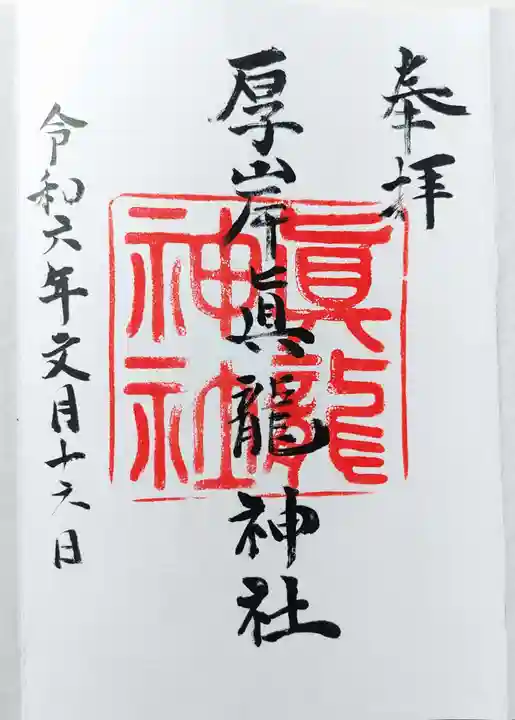 奉拝
厚岸眞龍神社
眞龍神社
令和六年文月十六日